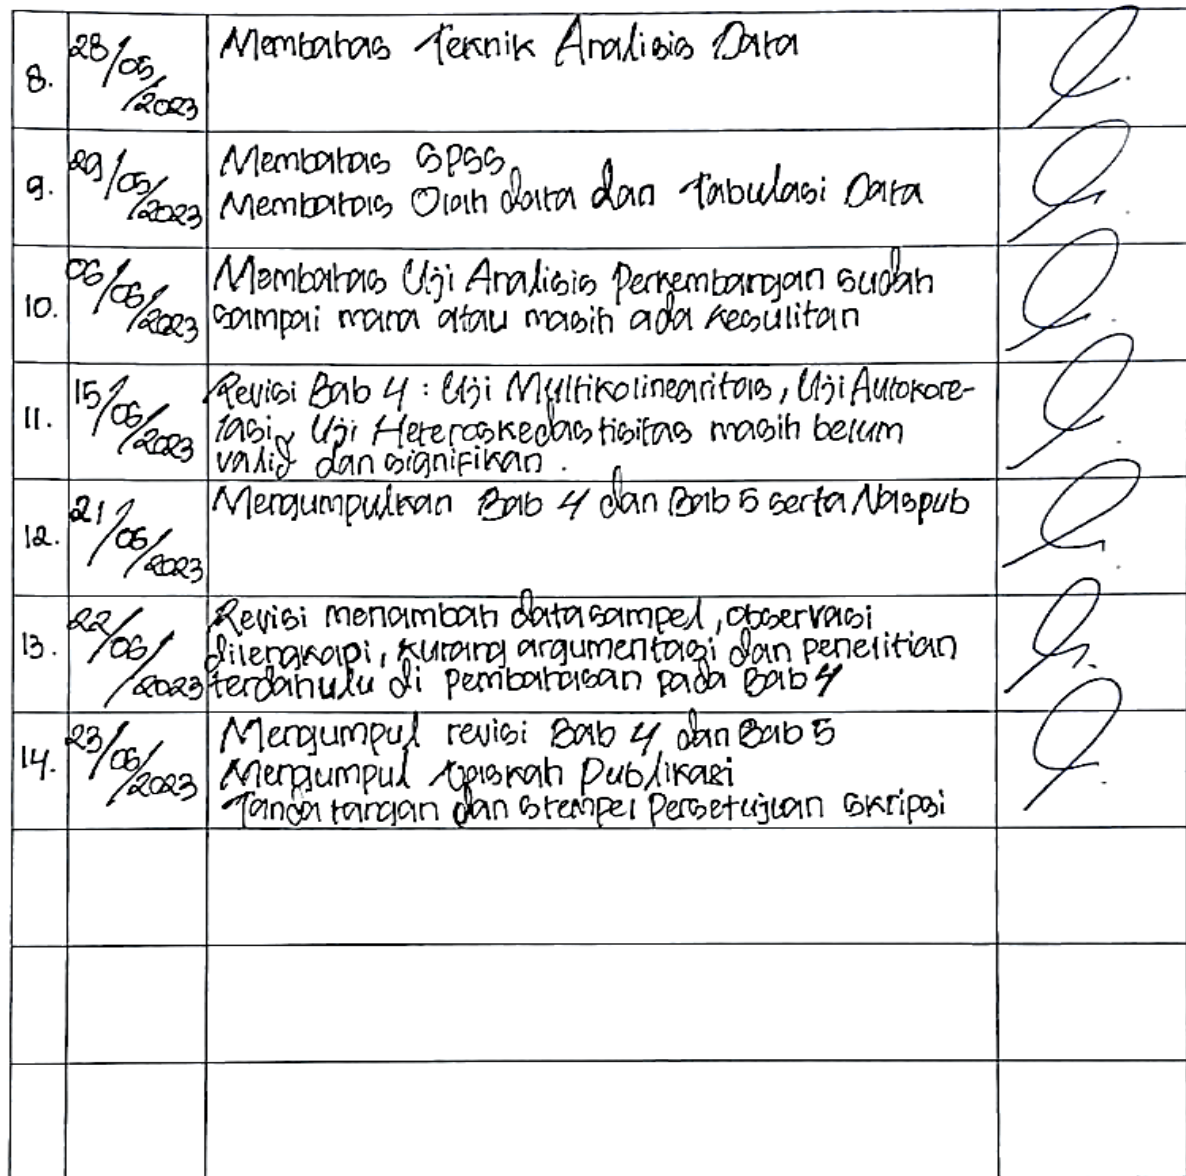 8. 28/05/2023 Membahas Teknik Analisis Data
9. 29/05/2023 Membahas SPSS
Membahas Olah data dan Tabulasi Data
10. 06/06/2023 Membahas Uji Analisis Perkembangan sudah
sampai mana atau masih ada kesulitan
11. 15/06/2023 Revisi Bab 4 : Uji Multikolinearitas, Uji Autokore-
lasi, Uji Heteroskedastisitas masih belum
valid dan signifikan.
12. 21/06/2023 Mengumpulkan Bab 4 dan Bab 5 serta Naspub
13. 22/06/2023 Revisi menambah data sampel, observasi
dilengkapi, kurang argumentasi dan penelitian
terdahulu di pembahasan pada Bab 4
14. 23/06/2023 Mengumpul revisi Bab 4 dan Bab 5
Mengumpul Publikasi
Tanda tangan dan stempel Persetujuan skripsi